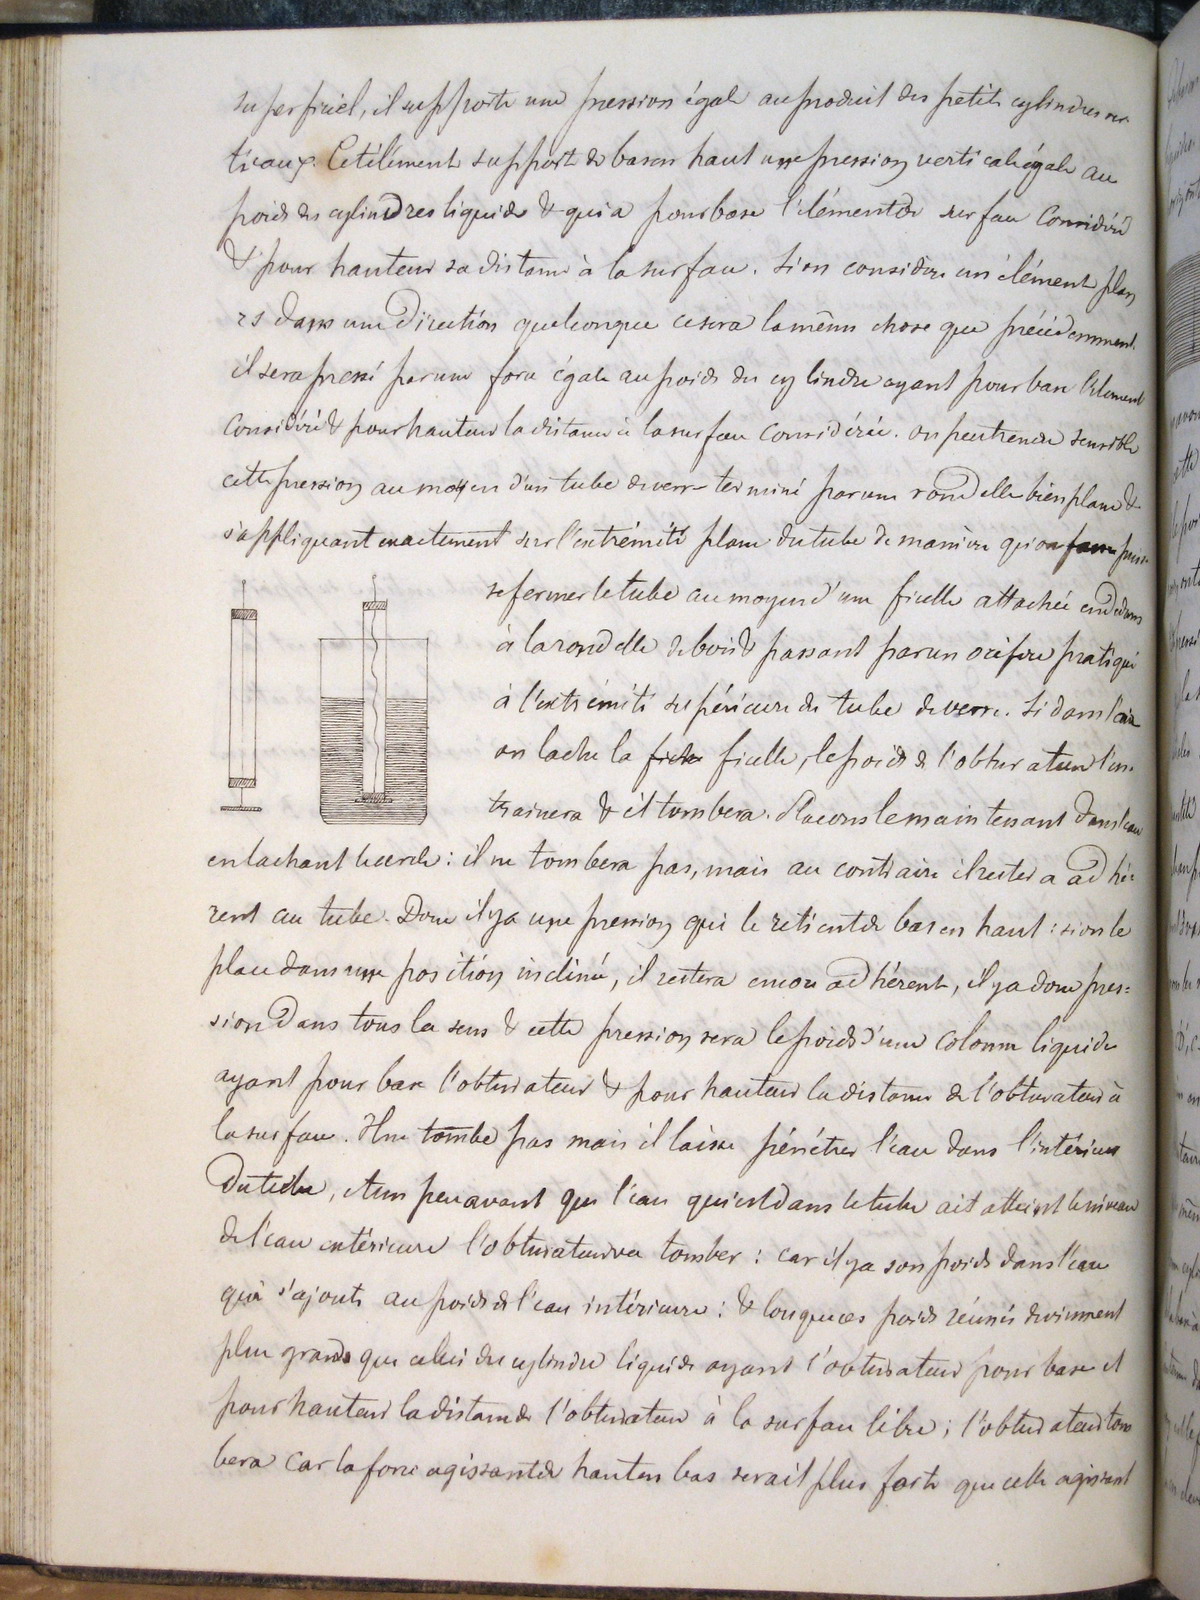 superficiel, il supporte une pression égale au produit des petits cylindres ver
ticaux. Cet élément supporte de bas en haut une pression verticale égale au
poids des cylindres liquides & qui a pour base l'élément de surface considéré
& pour hauteur sa distance à la surface. Si on considère un élément plan
rs dans une direction quelconque ce sera la même chose que précédemment.
il sera pressé par une force égale au poids du cylindre ayant pour base l'élément
considéré & pour hauteur la distance à la surface considérée. on peut rendre sensible
cette pression au moyen d'un tube de verre terminé par une rondelle bien plane &
s'appliquant exactement sur l'extrémité plane du tube de manière qu'on puis
se fermer le tube au moyen d'une ficelle attachée en dedans
à la rondelle de bois & passant par un orifice pratiqué
à l'extrémité supérieure du tube de verre. Si dans l'air
on lache la ficelle, le poids de l'obturateur l'en
trainera & il tombera. Placons le maintenant dans l'eau
en lachant la corde : il ne tombera pas, mais au contraire il restera adhé=
rent au tube. Donc il y a une pression qui le retient de bas en haut : si on le
place dans une position inclinée, il restera encore adhérent, il y a donc pres=
sion dans tous les sens & cette pression sera le poids d'une colonne liquide
ayant pour base l'obturateur & pour hauteur la distance de l'obturateur à
la surface. Il ne tombe pas mais il laisse pénétrer l'eau dans l'intérieur
du tube, et un peu avant que l'eau qui est dans le tube ait atteint le niveau
de l'eau extérieure l'obturateur va tomber : car il y a son poids dans l'eau
qui s'ajoute au poids de l'eau intérieure : & lorsque ces poids réunis deviennent
plus grands que celui du cylindre liquide ayant l'obturateur pour base et
pour hauteur la distance de l'obturateur à la surface libre ; l'obturateur tom
bera car la force agissant de haut en bas serait plus forte que celle agissant